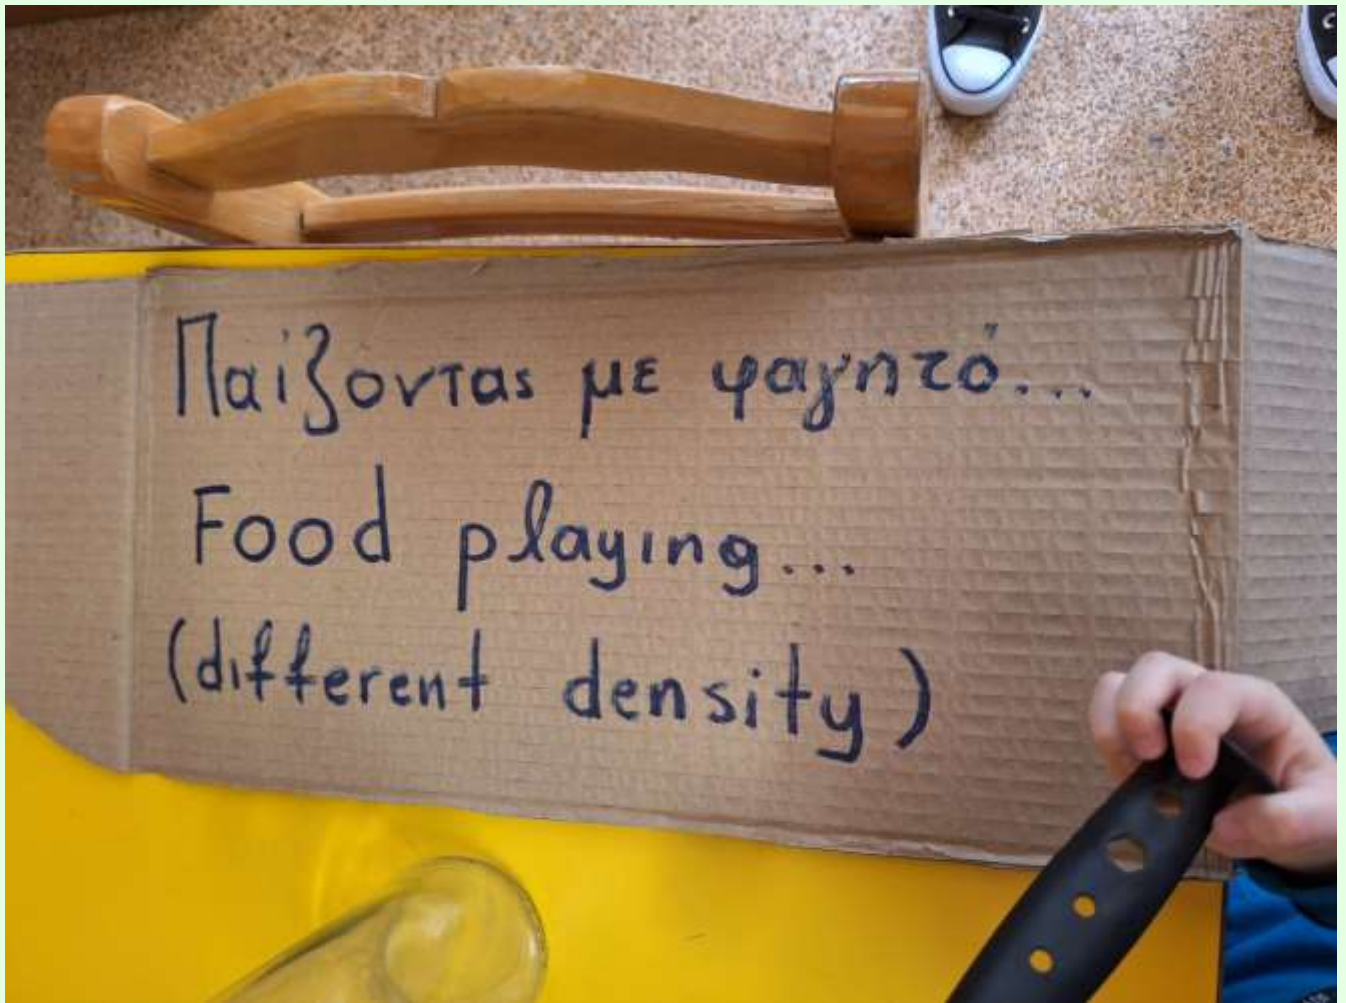 Παίζοντας με φαγητό...
Food playing...
(different density)